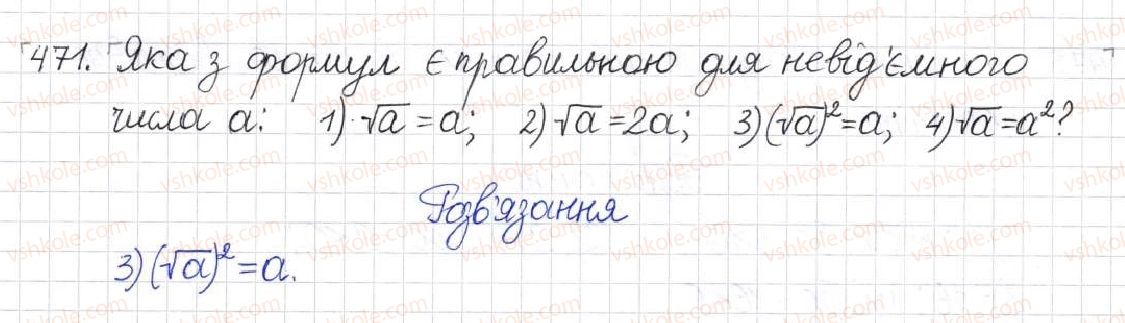 471. Яка з формул є правильною для невід'ємного
числа a: 1) √a = a; 2) √a = 2a; 3) (√a)² = a; 4) √a = a²?
Розв'язання
3) (√a)² = a.